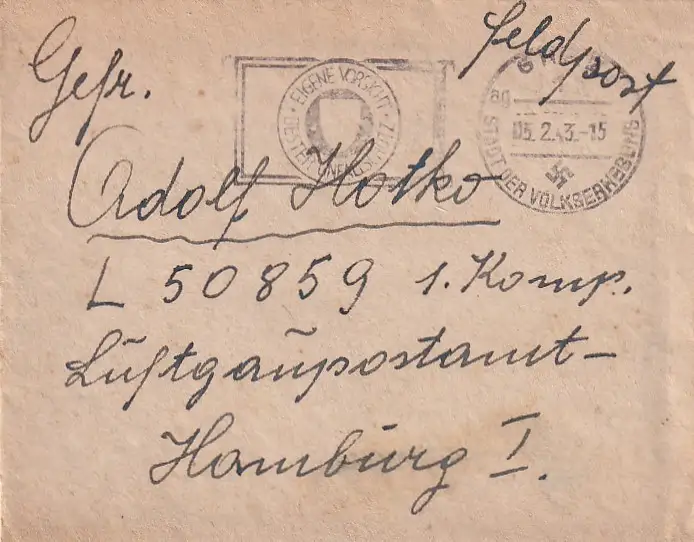 Feldpost
Gefr.
EIGENE VORSICHT
BESTER UNFALLSCHUTZ
G
ag
05.2.43.-15
STADT DER VOLKSERHEBUNG
Adolf Hotko
L 50859 1. Komp.
Luftgaupostamt-
Hamburg I.